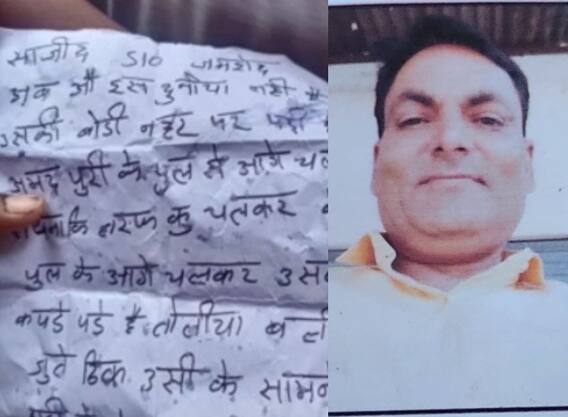 साजीद S10 जमशेद
अब औ इस दुनीया नही है
उसकी बोडी नहर पर पडी
अमद पुरी के पुल से आगे चल
तरफ कु चलकर
पुल के आगे चलकर उस
कपडे पडे है तोलीया व
जुते ठिक उसी के सामन